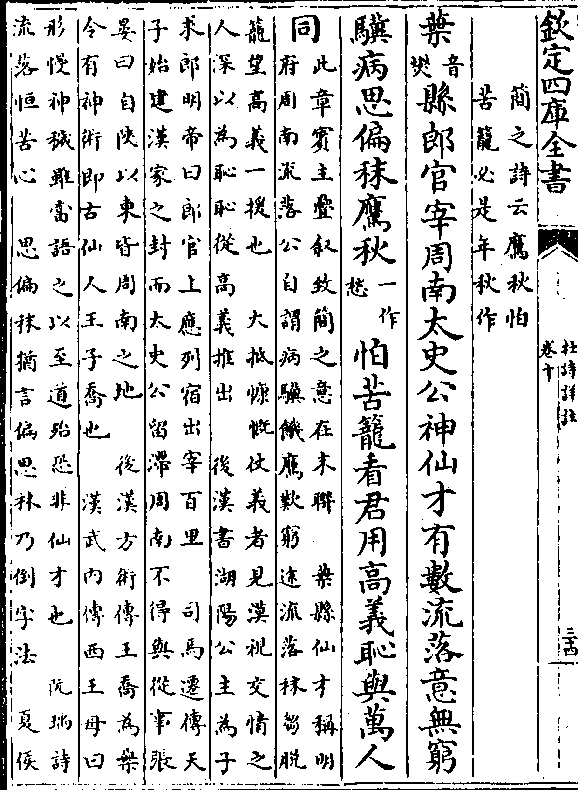 欽定四庫全書
杜詩詳註
卷十
三十四
簡之詩云鷹秋怕
苦籠必是年秋作
葉音樊縣郎官宰周南太史公神仙才有數流落意無窮
驥病思偏秣鷹秋一作愁怕苦籠看君用高義恥與萬人
同此章賓主疊叙致簡之意在末聯 葉縣仙才稱明
府周南流落公自謂病驥饑鷹歎窮途流落秣芻脫
籠望高義一援也 大抵慷慨仗義者見漠視交情之
人深以為恥恥從高義推出 後漢書湖陽公主為子
求郎明帝曰郎官上應列宿出宰百里 司馬遷傳天
子始建漢家之封而太史公留滯周南不得與從事張
晏曰自陜以東皆周南之地 後漢方術傳王喬為葉
令有神術即古仙人王子喬也 漢武內傳西王母曰
形慢神穢雖當語之以至道殆恐非仙才也 阮瑀詩
流落恒苦心 思偏秣猶言偏思秣乃倒字法 夏侯